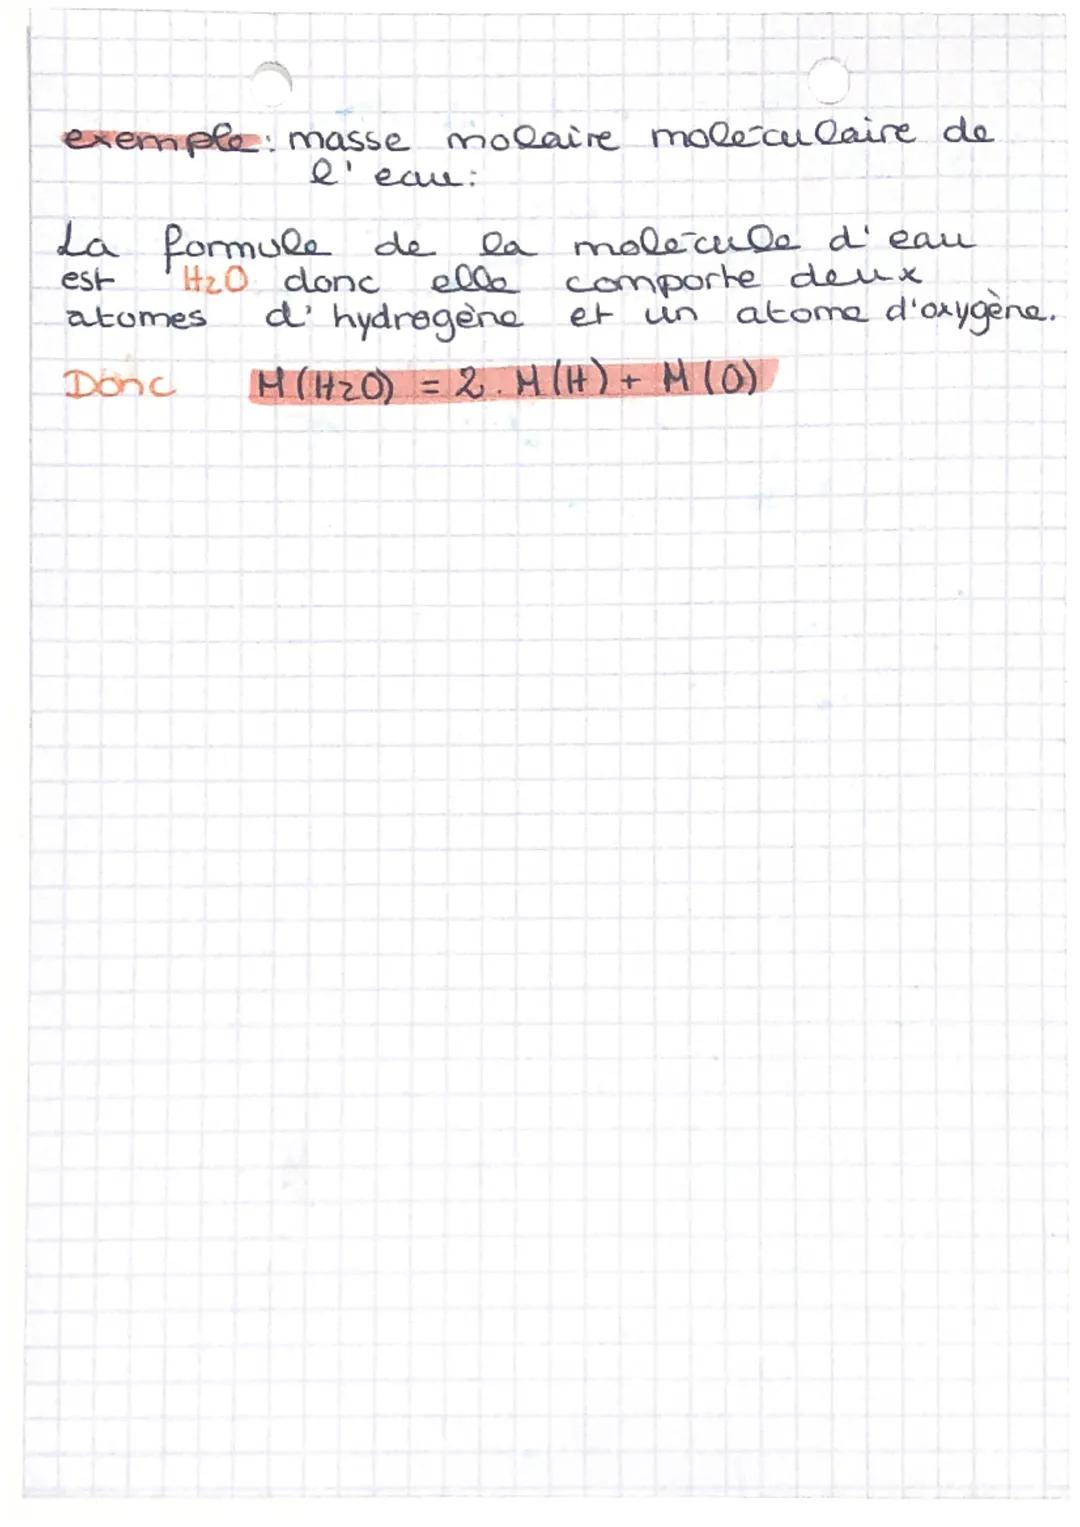 exemple: masse molaire moléculaire de
l'eau:
La formule de la molécule d'eau
est H2O donc elle comporte deux
atomes d'hydrogène et un atome d'oxygène.
Donc M(H2O) = 2. M(H) + M(O)